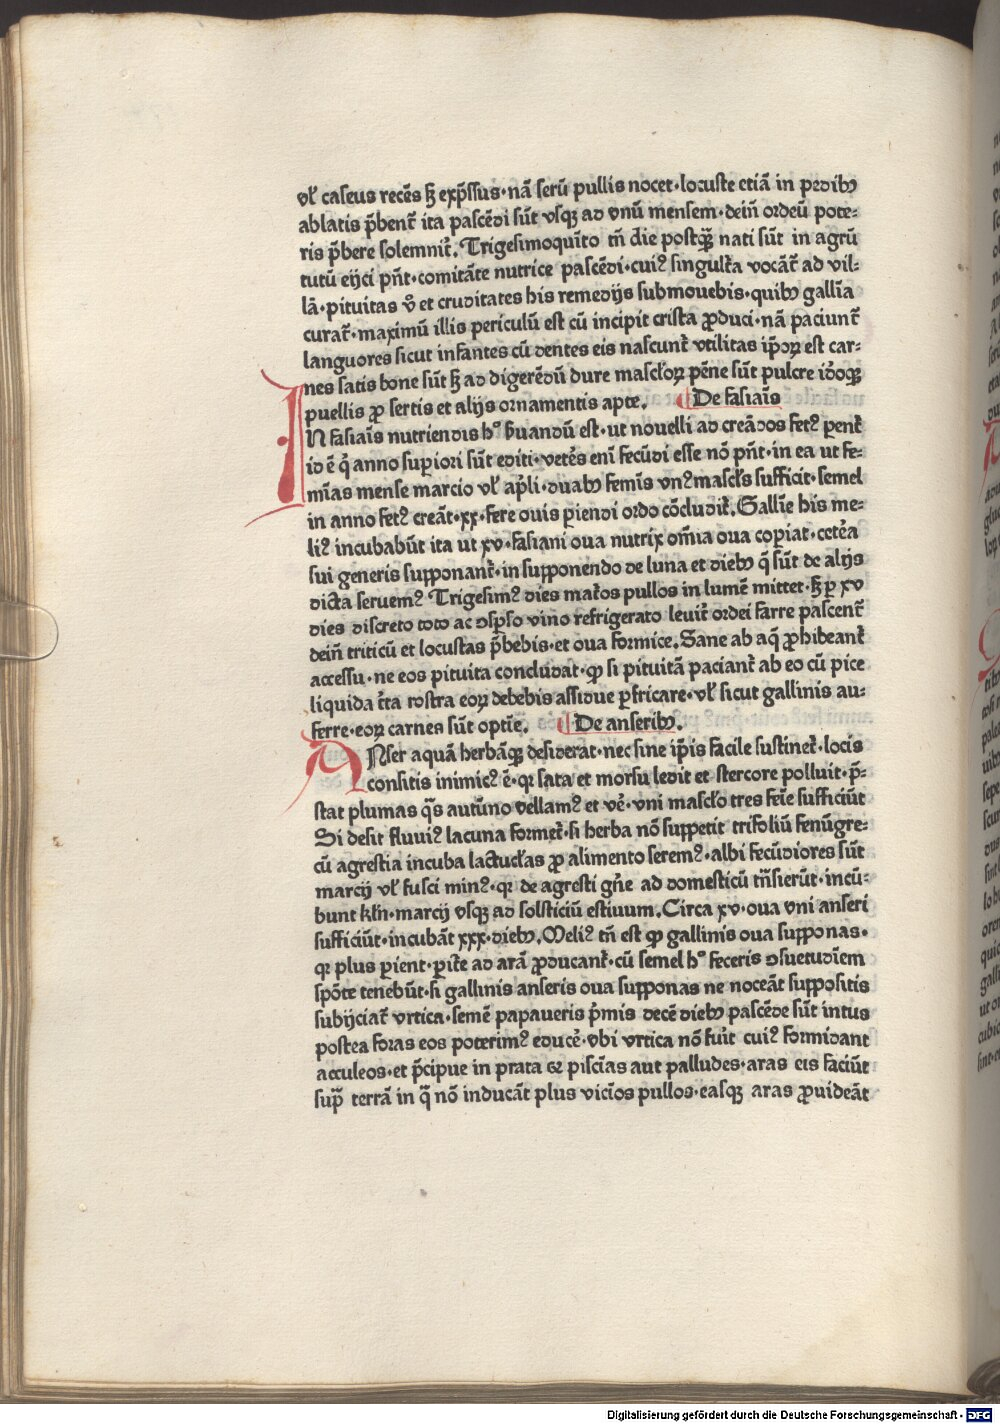 vl̄ caseus recēs sꝫ exp̄ssus·nā serū pullis nocet·locuste etiā in pꝛoibꝰ
ablatis p̄bent̄ ita pascēdi sūt vsqꝫ ad vnū mensem·dein̄ ordeū pote⸗
ris p̄bere solemnit̄. Trigesimoquīto tn̄ die postqꝫ̄ nati sūt in agrū
tutū eijci pn̄t·comitāte nutrice pascēdi·cuiꝰ singult̄a vocāt̄ ad vil⸗
lā·pituitas v̄o et cruditates his remedijs submouebis·quibꝰ gallīa
curat̄·maximū illis periculū est cū incipit crista ꝓduci·nā paciunt̄
languores sicut infantes cū dentes eis nascunt̄ vtilitas ip̄oꝝ est car⸗
nes satis bone sūt sꝫ ad digerēdū dure mascl̄oꝝ pēne sūt pulcre id̄oqꝫ
puellis ꝓ sertis et alijs ornamentis apte. De fasiaīs
IN fasiaīs nutriendis hͦ ẜuandū est·ut nouelli ad creādos fetꝰ ꝑent̄
id ē q̄ anno suꝑiori sūt editi·vetēs enī fecūdi esse nō pn̄t·in ea ut fe⸗
mīas mense marcio vl̄ ap̄li·duabꝰ femīs vnꝰ mascl̄s sufficit·semel
in anno fetꝰ creāt·xx·fere ouis ꝑiendi ordo cōcludit̄. Gallīe his me⸗
liꝰ incubabūt ita ut xv·fasiani oua nutrix om̄ia oua coꝑiat·cetēa
sui generis supponant̄·in supponendo de luna et diebꝰ q̄ sūt de alijs
dicta seruemꝰ Trigesimꝰ dies mat̄os pullos in lumē mittet·sꝫ ꝑ xv
dies discreto toto ac ɔspso vino refrigerato leuit̄ ordei farre pascent̄
dein̄ triticū et locustas p̄bebis·et oua formice. Sane ab aq̄ ꝓhibeant̄
accessu·ne eos pituita concludat·ꝙ si pituitā paciant̄ ab eo cū pice
liquida t̄ta rostra eoꝝ debebis assidue ꝑfricare·vl̄ sicut gallinis au⸗
ferre·eoꝝ carnes sūt optīe. De anseribꝰ.
ANser aquā herbāqꝫ desiderat·nec sine ip̄is facile sustinet̄·locis
consitis inimicꝰ ē·qꝛ sata et morsu ledit et stercore polluit·p̄⸗
stat plumas q̄s autūno vellamꝰ et vē·vni mascl̄o tres fēīe sufficiūt
Si desit fluuiꝰ lacuna formet̄·si herba nō suppetit trifoliū fenūgre⸗
cū agrestia incuba lactucl̄as ꝓ alimento seremꝰ·albi fecūdiores sūt
marcij vl̄ fusci minꝰ·qꝛ de agresti gn̄e ad domesticū tn̄sierūt·incū⸗
bunt kl̄n·marcij vsqꝫ ad solsticiū estiuum. Circa xv·oua vni anseri
sufficiūt·incubāt xxx·diebꝰ. Meliꝰ tn̄ est ꝙ gallinis oua supponas·
qꝛ plus ꝑient·ꝑit̄e ad arā ꝓducant̄·cū semel hͦ feceris ɔsuetudīem
spōte tenebūt·si gallinis anseris oua supponas ne noceāt suppositis
subijciat̄ vrtica·semē papaueris p̄mis decē diebꝰ pascēde sūt intus
postea foras eos poterimꝰ educē·vbi vrtica nō fuīt cuiꝰ formidant
acculeos·et p̄cipue in prata uꝛ piscīas aut palludes·aras eis faciūt
sup̄ terrā in q̄ nō inducāt plus vicīos pullos·easqꝫ aras ꝓuideāt
Digitalisierung gefördert durch die Deutsche Forschungsgemeinschaft - DFG